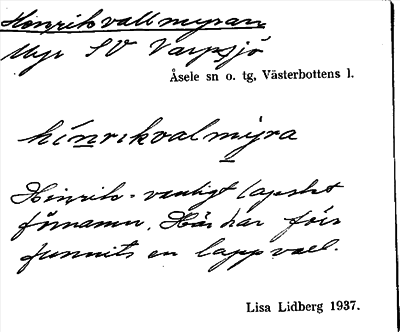 Hinrikvallmyran
Myr SV Varpsjö
Åsele sn o. tg, Västerbottens l.
hínrıkvalmỳra
Hinrik - vanligt lapskt
förnamn. Här har förr
funnits en lappvall.
Lisa Lidberg 1937.